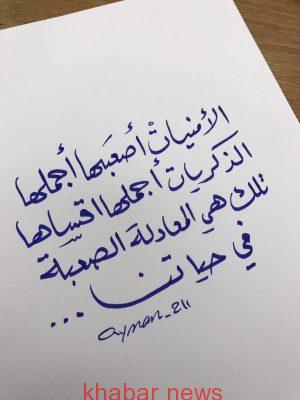 الأمنياتْ أصعبَها أجملها
الذكريات أجملها اقسّاها
تلك هي المعادلة الصعبَة
في حياتنا ...
ayman_211
khabar news